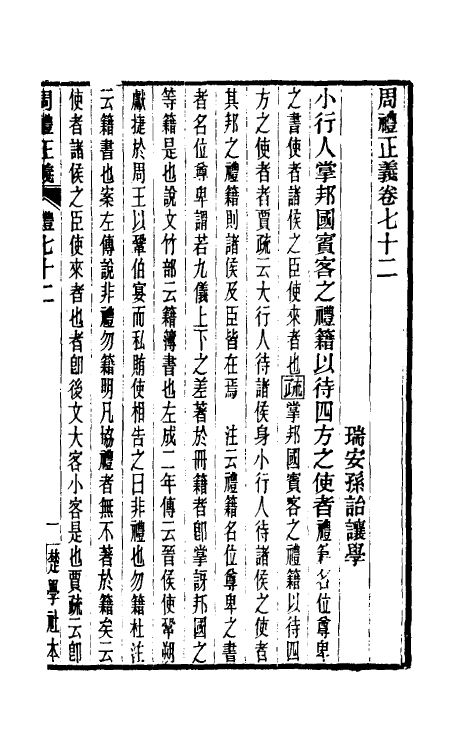 周禮正義卷七十二
瑞安孫詒讓學
小行人掌邦國賓客之禮籍以待四方之使者禮籍名位尊卑
之書使者諸侯之臣使來者也疏掌邦國賓客之禮籍以待四
方之使者者賈疏云大行人待諸侯身小行人待諸侯之使者
其邦之禮籍則諸侯及臣皆在焉 注云禮籍名位尊卑之書
者名位尊卑謂若九儀上下之差著於冊籍者卽掌訝邦國之
等籍是也說文竹部云籍簿書也左成二年傳云晉侯使鞏朔
獻捷於周王以鞏伯宴而私賄使相告之曰非禮也勿籍杜注
云籍書也案左傳說非禮勿籍明凡協禮者無不著於籍矣云
使者諸侯之臣使來者也者卽後文大客小客是也賈疏云卽
周禮正義 禮七十二 一 楚學社本